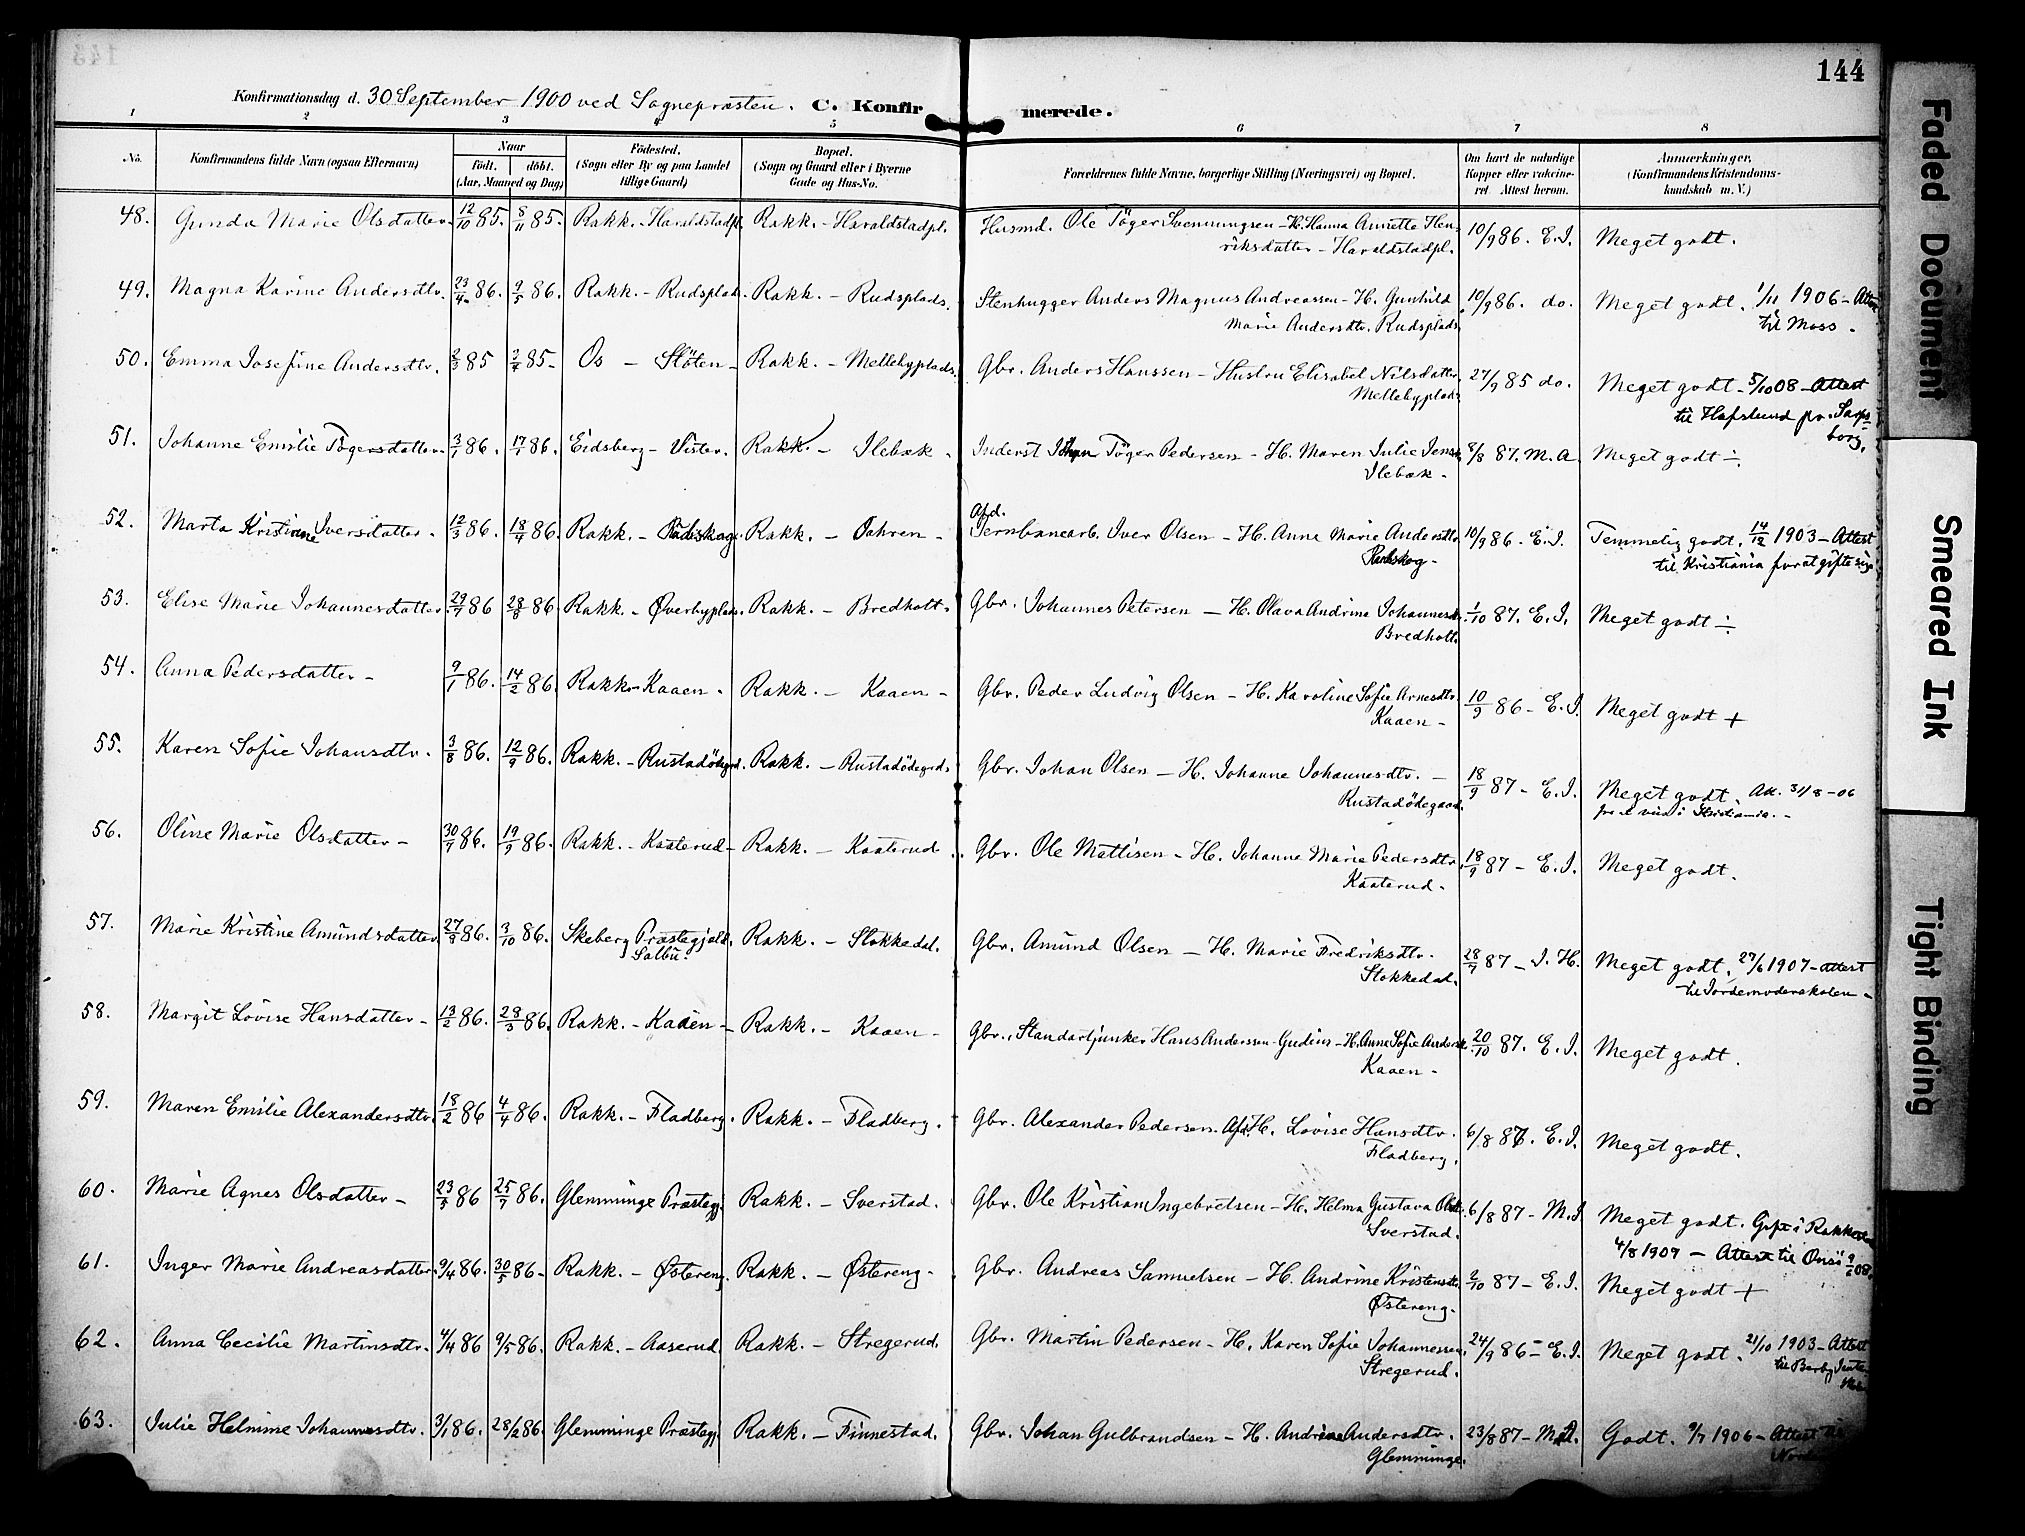 144
Konfirmationsdag d. 30 September 1900 ved Sognepræsten. C. Konfirmerede.
1 2 3 4 5 6 7 8
No. Konfirmandens fulde Navn (ogsaa Efternavn) Naar født. døbt. (Aar, Maaned og Dag) Fødested. (Sogn eller By og paa Landet tillige Gaard) Bopæl. (Sogn og Gaard eller i Byerne Gade og Hus-No. Forældrenes fulde Navne, borgerlige Stilling (Næringsvei) og Bopæl. Om havt de naturlige Kopper eller vaccineret. Attest herom. Anmærkninger. (Konfirmandens Kristendomskundskab m. V.)
48. Gunda Marie Olsdatter. 12/10 85. 8/11 85. Rakk. - Haraldstadpl. Rakk. - Haraldstadpl. Husmd. Ole Töger Svenningsen - H. Hanna Annette Hen- 10/9 86. E. I. Meget godt.
riksdatter - Haraldstadpl.
49. Magna Karine Andersdtr. 23/4 86. 9/5 86. Rakk. - Rudsplads. Rakk. - Rudsplads. Stenhugger Anders Magnus Andreassen - H. Gunhild 10/9 86. do. Meget godt. 1/11 1906 - Attest
Marie Andersdtr. Rudsplads. til Moss.
50. Emma Josefine Andersdtr. 2/3 85 3/4 85 - Os - Slöten - Rakk. - Mellebyplads. Gbr. Anders Hanssen - Hustru Elisabet Nilsdatter 27/9 85 do. Meget godt - 5/10 08 - Attest
Mellebyplads. til Hafslund pr. Sarps-
borg.
51. Johanne Emilie Tögersdatter. 3/1 86. 17/1 86. Eidsberg - Vister. Rakk. - Ilebæk. Inderst Johan Töger Pedersen - H. Maren Julie Jens 8/8 87. M. A. Meget godt ÷
Ilebæk -
52. Marta Kristiane Iversdatter. 12/3 86. 18/4 86. Rakk. - Rudskog. Rakk. - Dahren - Afd. Jernbanearb. Iver Olsen - H. Anne Marie Andersdtr. 10/9 86. E. I. Temmelig godt. 14/12 1903 - Attest
Rudskog - til Kristiania for at gifte sig
53. Elise Marie Johannesdatter 29/7 86 28/8 86. Rakk. - Øverbyplads. Rakk. - Bredholt. Gbr. Johannes Petersen - H. Olava Andrine Johannesdtr. 1/10 87. E. I. Meget godt ÷
Bredholt.
54. Anna Pedersdatter - 9/1 86. 14/2 86. Rakk. - Kaaen. Rakk. - Kaaen - Gbr. Peder Ludvig Olsen - H. Karoline Sofie Arnesdtr. 10/9 86 - E. I. Meget godt +
Kaaen -
55. Karen Sofie Johansdtr. 3/8 86. 12/9 86. Rakk. - Rustadödegrd. Rakk. - Rustadödegrd. Gbr. Johan Olsen - H. Johanne Johannesdtr. - 18/9 87 - E. I. Meget godt. Att. 31/8 - 06
Rustadödegaard. for at vies i Kristiania. -
56. Oline Marie Olsdatter - 30/7 86. 19/9 86. Rakk. - Kaaterud - Rakk. - Kaaterud. Gbr. Ole Mattisen - H. Johanne Marie Pedersdtr. 18/9 87 - E. I. Meget godt.
Kaaterud.
57. Marie Kristine Amundsdatter. 27/8 86. 3/10 86. Skeberg Præstegjeld. Rakk. - Stokkedal. Gbr. Amund Olsen - H. Marie Fredriksdtr. 28/7 87 - I. H. Meget godt. 27/6 1907 - attest
Salbu. Stokkedal. til Jordemoderskolen -
58. Margit Lovise Hansdatter - 13/2 86. 28/3 86. Rakk. - Kaaen - Rakk. - Kaaen - Gbr., Standartjunker Hans Anderssen Gudim - H. Anne Sofie Andersd. 20/10 87. E. I. Meget godt.
Kaaen -
59. Maren Emilie Alexandersdtr. 18/2 86 4/4 86. Rakk. - Fladberg. Rakk. - Fladberg. Gbr. Alexander Pedersen. Afd. H. Lovise Hansdtr. 6/8 87. E. I. Meget godt.
Fladberg.
60. Marie Agnes Olsdatter - 23/5 86 25/7 86. Glemminge Præstegj. Rakk. - Sverstad. Gbr. Ole Kristian Ingebretsen - H. Helma Gustava Olsd. 6/8 87 - M. I. Meget godt. Gift i Rakkestad
Sverstad. 4/8 1907 - Attest til Onsö 9/6 08.
61. Inger Marie Andreasdatter. 9/4 86. 30/5 86 - Rakk. - Østereng. Rakk. - Østereng. Gbr. Andreas Samuelsen - H. Andrine Kristensdtr. 2/10 87 - E. I. Meget godt +
Østereng -
62. Anna Cecilie Martinsdtr. 4/4 86 9/5 86. Rakk. - Aaserud. Rakk. - Stregerud. Gbr. Martin Pedersen - H. Karen Sofie Johannessen. 24/9 86 - E. I. Meget godt. 21/10 1903 - Attest
Stregerud. til Berby
63. Julie Helmine Johannesdtr. 3/1 86. 28/2 86. Glemminge Præstegj. Rakk. - Finnestad. Gbr. Johan Gulbrandsen - H. Andrine Andersdtr. 23/8 87 - M. A. Godt. 9/7 1906 - Attest til
Glemminge.
Faded Document
Smeared Ink
Tight Binding